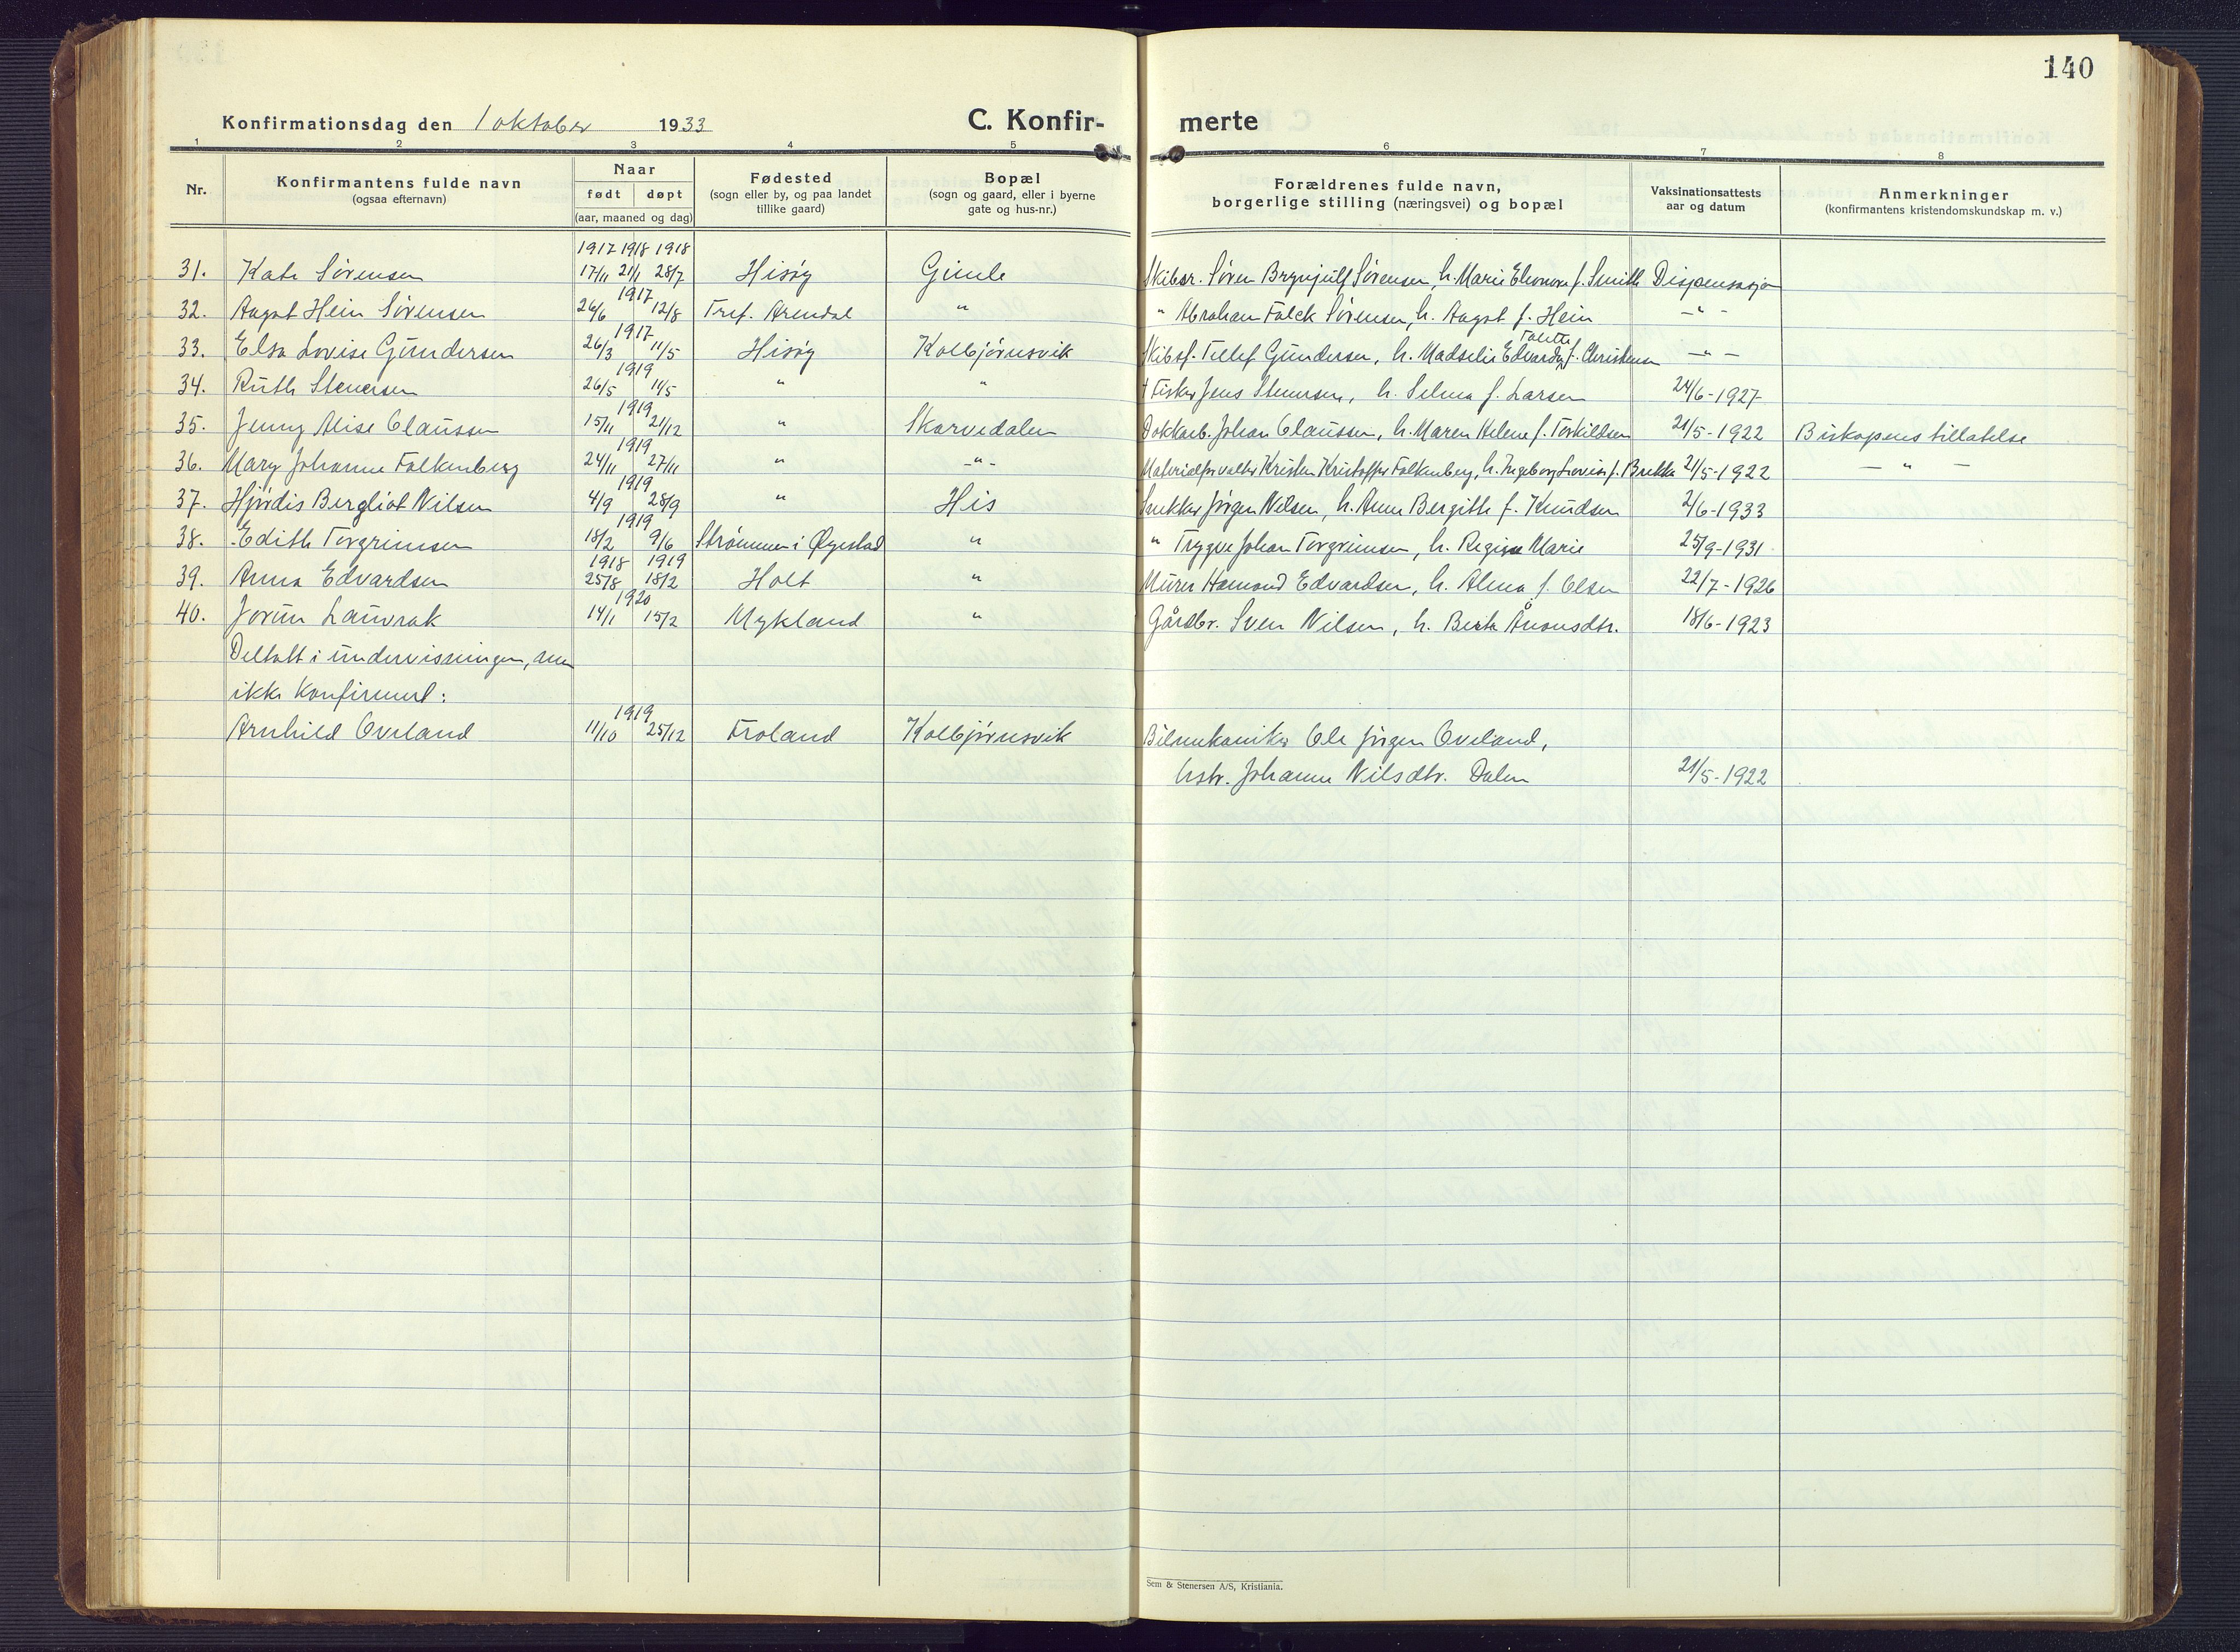 140
Konfirmationsdag den 1 oktober 1933 C. Konfir- merte
1 2 3 4 5 6 7 8
Nr. Konfirmantens fulde navn (ogsaa efternavn) Naar født døpt (aar, maaned og dag) Fødested (sogn eller by, og paa landet tillike gaard) Bopæl (sogn og gaard, eller i byerne gate og hus-nr.) Forældrenes fulde navn, borgerlige stilling (næringsvei) og bopæl Vaksinationsattests aar og datum Anmerkninger (konfirmantens kristendomskundskap m. v.)
1917 1918 1918
31. Kate Sørensen 17/11 21/1 28/7 Hisøy Gimle Skibsr. Søren Brynjulf Sørensen, h. Marie Eleonora f. Smith Dispensasjon
1917
32. Aagot Hein Sørensen 26/6 12/8 Tref. Arendal " " Abraham Falck Sørensen, h. Aagot f. Hein - " -
1917
33. Elsa Lovise Gundersen 26/3 11/5 Hisøy Kolbjørnsvik Skibsf. Tellef Gundersen, h. Madselie Edvardy f. Christensen - " -
1919
34. Ruth Stenersen 26/5 11/5 " " † Fisker Jens Stenersen, h. Selma f. Larsen 24/6-1927
1919
35. Jenny Alise Claussen 15/11 21/12 " Skarvedalen Dokkarb. Johan Claussen, h. Maren Helene f. Torkildsen 21/5-1922 Biskopens tillatelse
1919
36. Mary Johanne Falkenberg 24/11 27/11 " - " - Materialforvalter Kristen Kristoffer Falkenberg, h. Ingeborg Lovise f. Brekka 21/5-1922 - " -
1919
37. Hjørdis Bergliot Nilsen 4/9 28/9 " His Snekker Jørgen Nilsen, h. Anne Bergithe f. Knudsen 2/6-1933
1919
38. Edith Torgrimsen 18/2 9/6 Strømmen i Øyestad " " Trygve Johan Torgrimsen, h. Regine Marie 25/9-1931
1918 1919
39. Anna Edvardsen 25/8 18/2 Holt " Murer Hamond Edvardsen, h. Alma f. Olsen 22/7-1926
1920
40. Jorun Lauvrak 14/1 15/2 Mykland " Gårdbr. Sven Nilsen, h. Berta Ånonsdtr. 18/6-1923
Deltatt i undervisningen, men
ikke konfirmert:
1919
Arnhild Overland 11/10 25/12 Froland Kolbjørnsvik Bilmekaniker Ole Jørgen Overland,
hstr. Johanne Nilsdtr. Dalen 21/5-1922
Sem & Stenersen A/S, Kristiania.